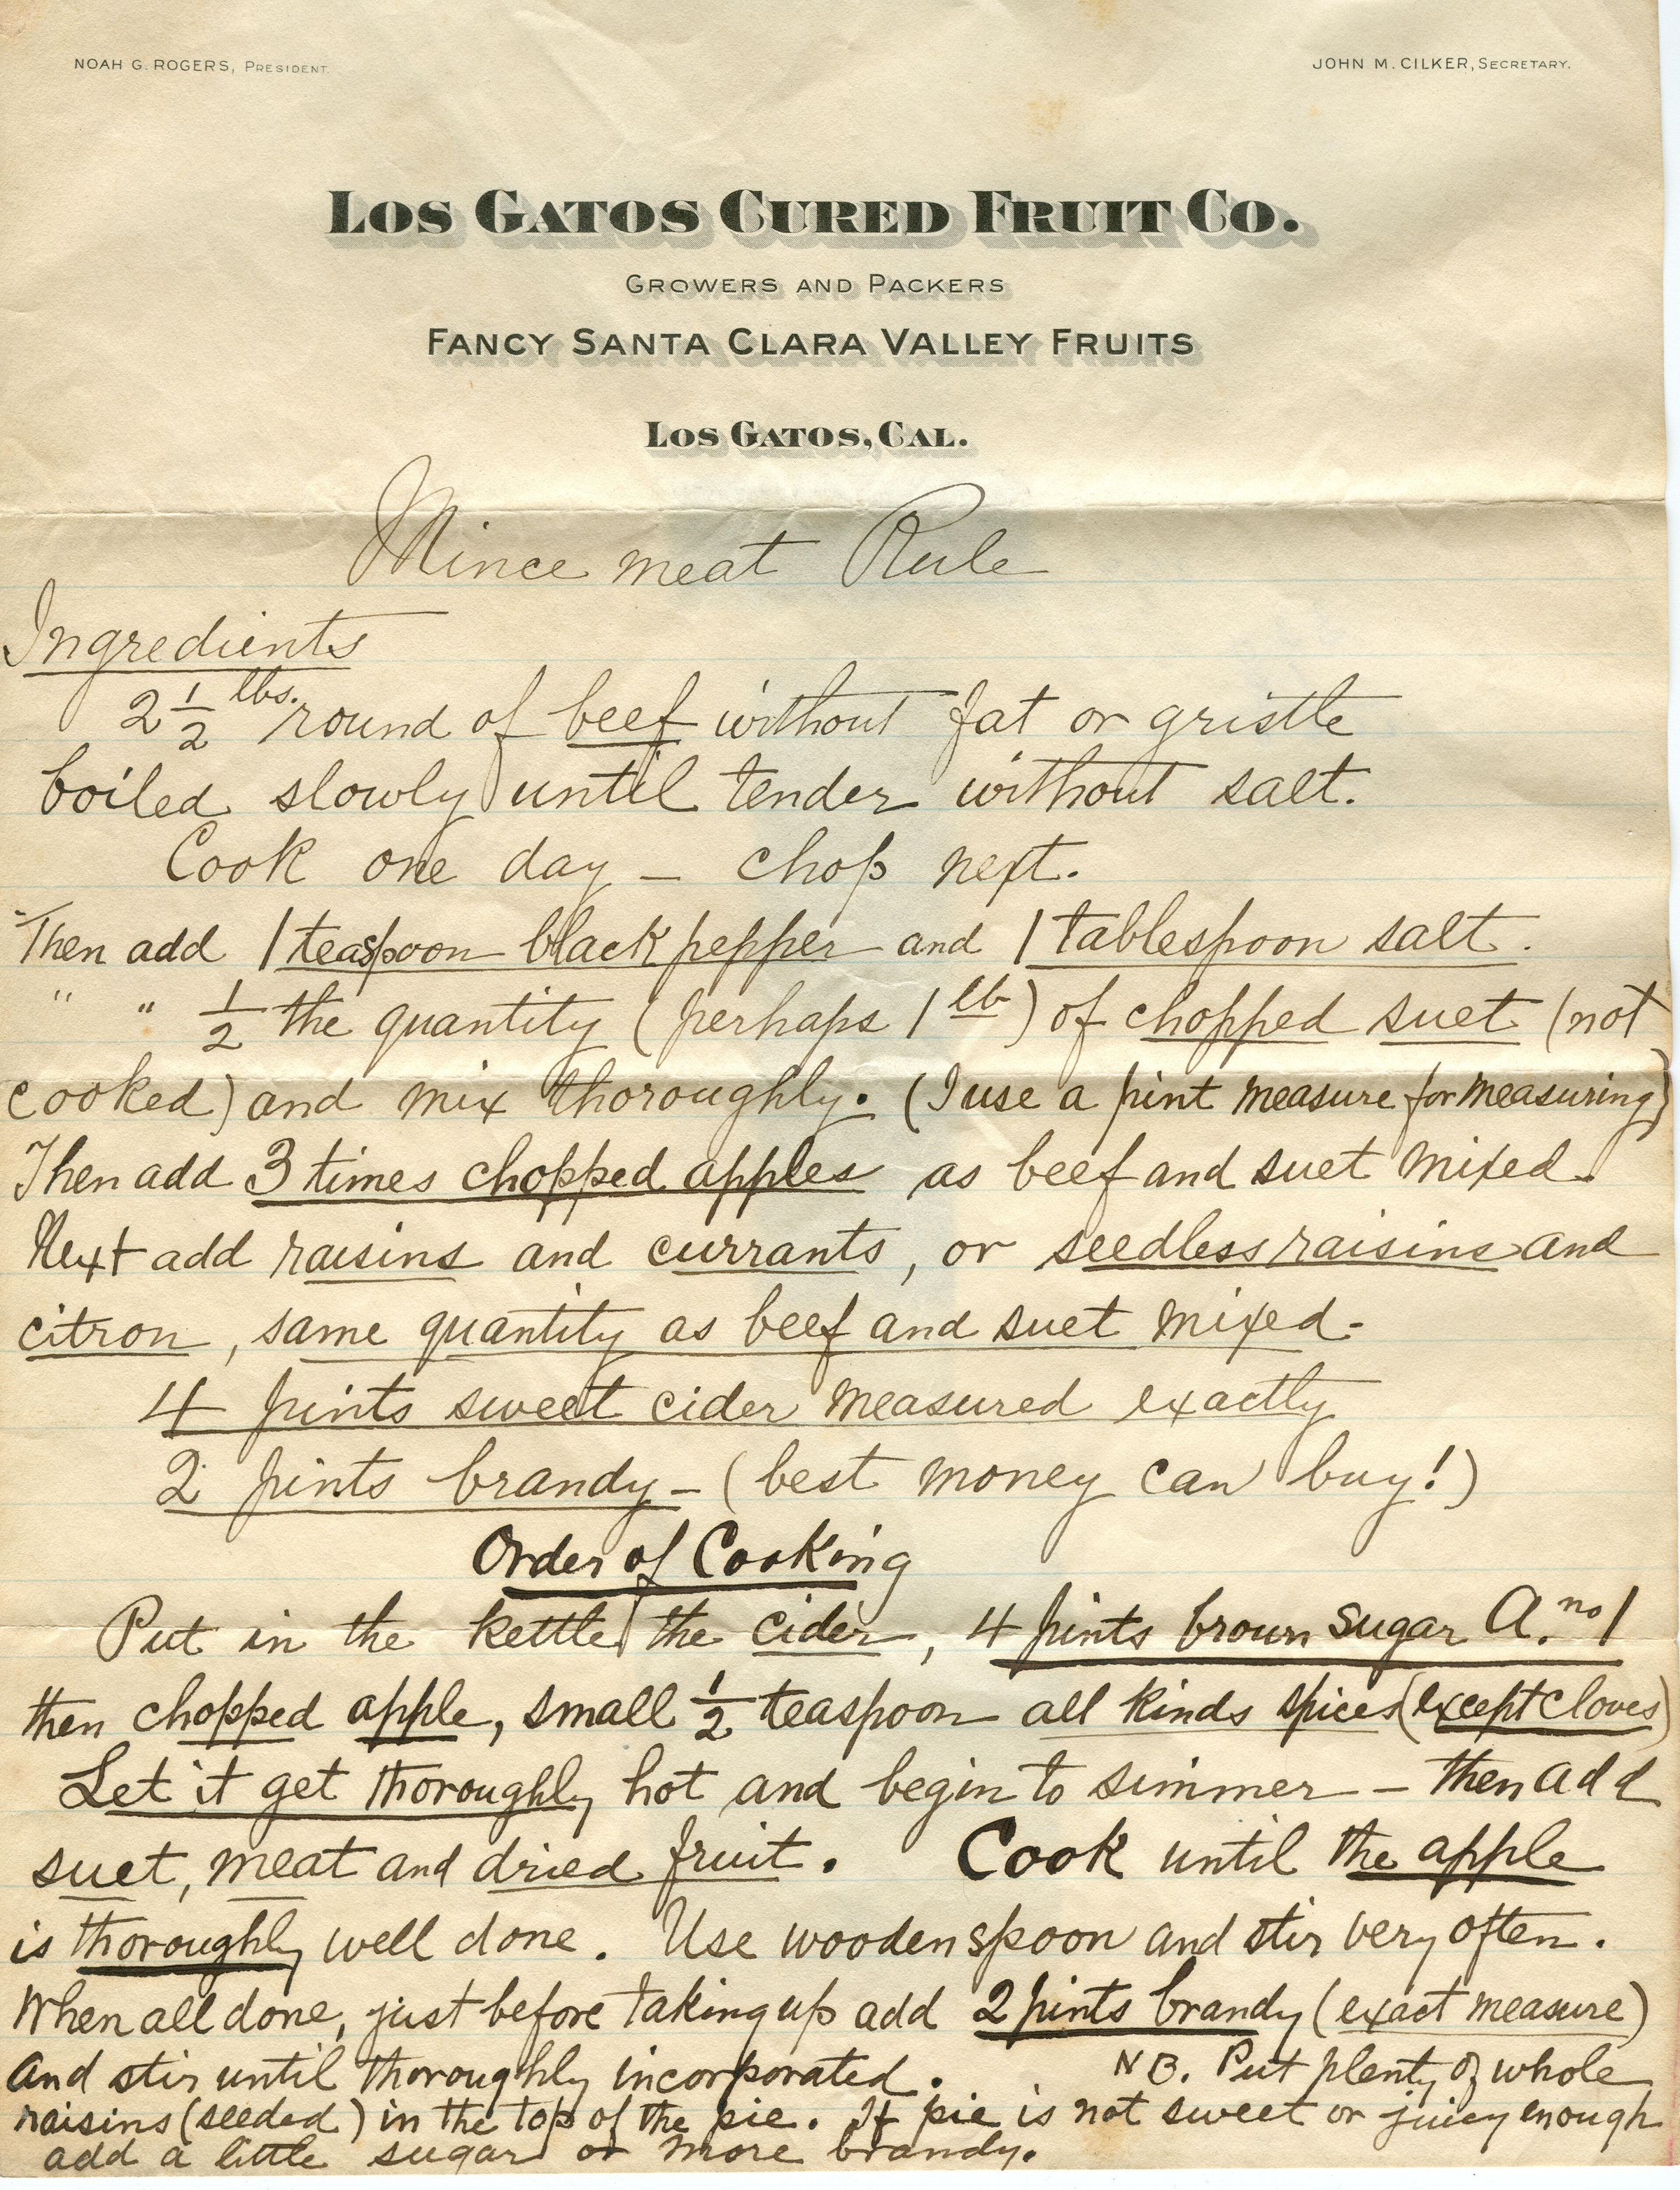 NOAH G. ROGERS, PRESIDENT.
JOHN M. CILKER, SECRETARY.
LOS GATOS CURED FRUIT CO.
GROWERS AND PACKERS
FANCY SANTA CLARA VALLEY FRUITS
LOS GATOS, CAL.
Mince meat Rule
Ingredients
2 1/2 lbs. round of beef without fat or gristle
boiled slowly until tender without salt.
Cook one day – chop next.
Then add 1 teaspoon black pepper and 1 tablespoon salt.
" " 1/2 the quantity (perhaps 1 lb) of chopped suet (not
cooked) and mix thoroughly. (I use a pint measure for measuring)
Then add 3 times chopped apples as beef and suet mixed.
Next add raisins and currants, or seedless raisins and
citron, same quantity as beef and suet mixed-
4 pints sweet cider measured exactly
2 pints brandy – (best money can buy!)
Order of Cooking
Put in the kettle the cider, 4 pints brown sugar A. no 1
then chopped apple, small 1/2 teaspoon all kinds spices (except cloves)
Let it get thoroughly hot and begin to simmer – then add
suet, meat and dried fruit. Cook until the apple
is thoroughly well done. Use wooden spoon and stir very often.
When all done, just before taking up add 2 pints brandy (exact measure)
And stir until thoroughly incorporated. NB. Put plenty of whole
raisins (seeded) in the top of the pie. If pie is not sweet or juicy enough
add a little sugar or more brandy.